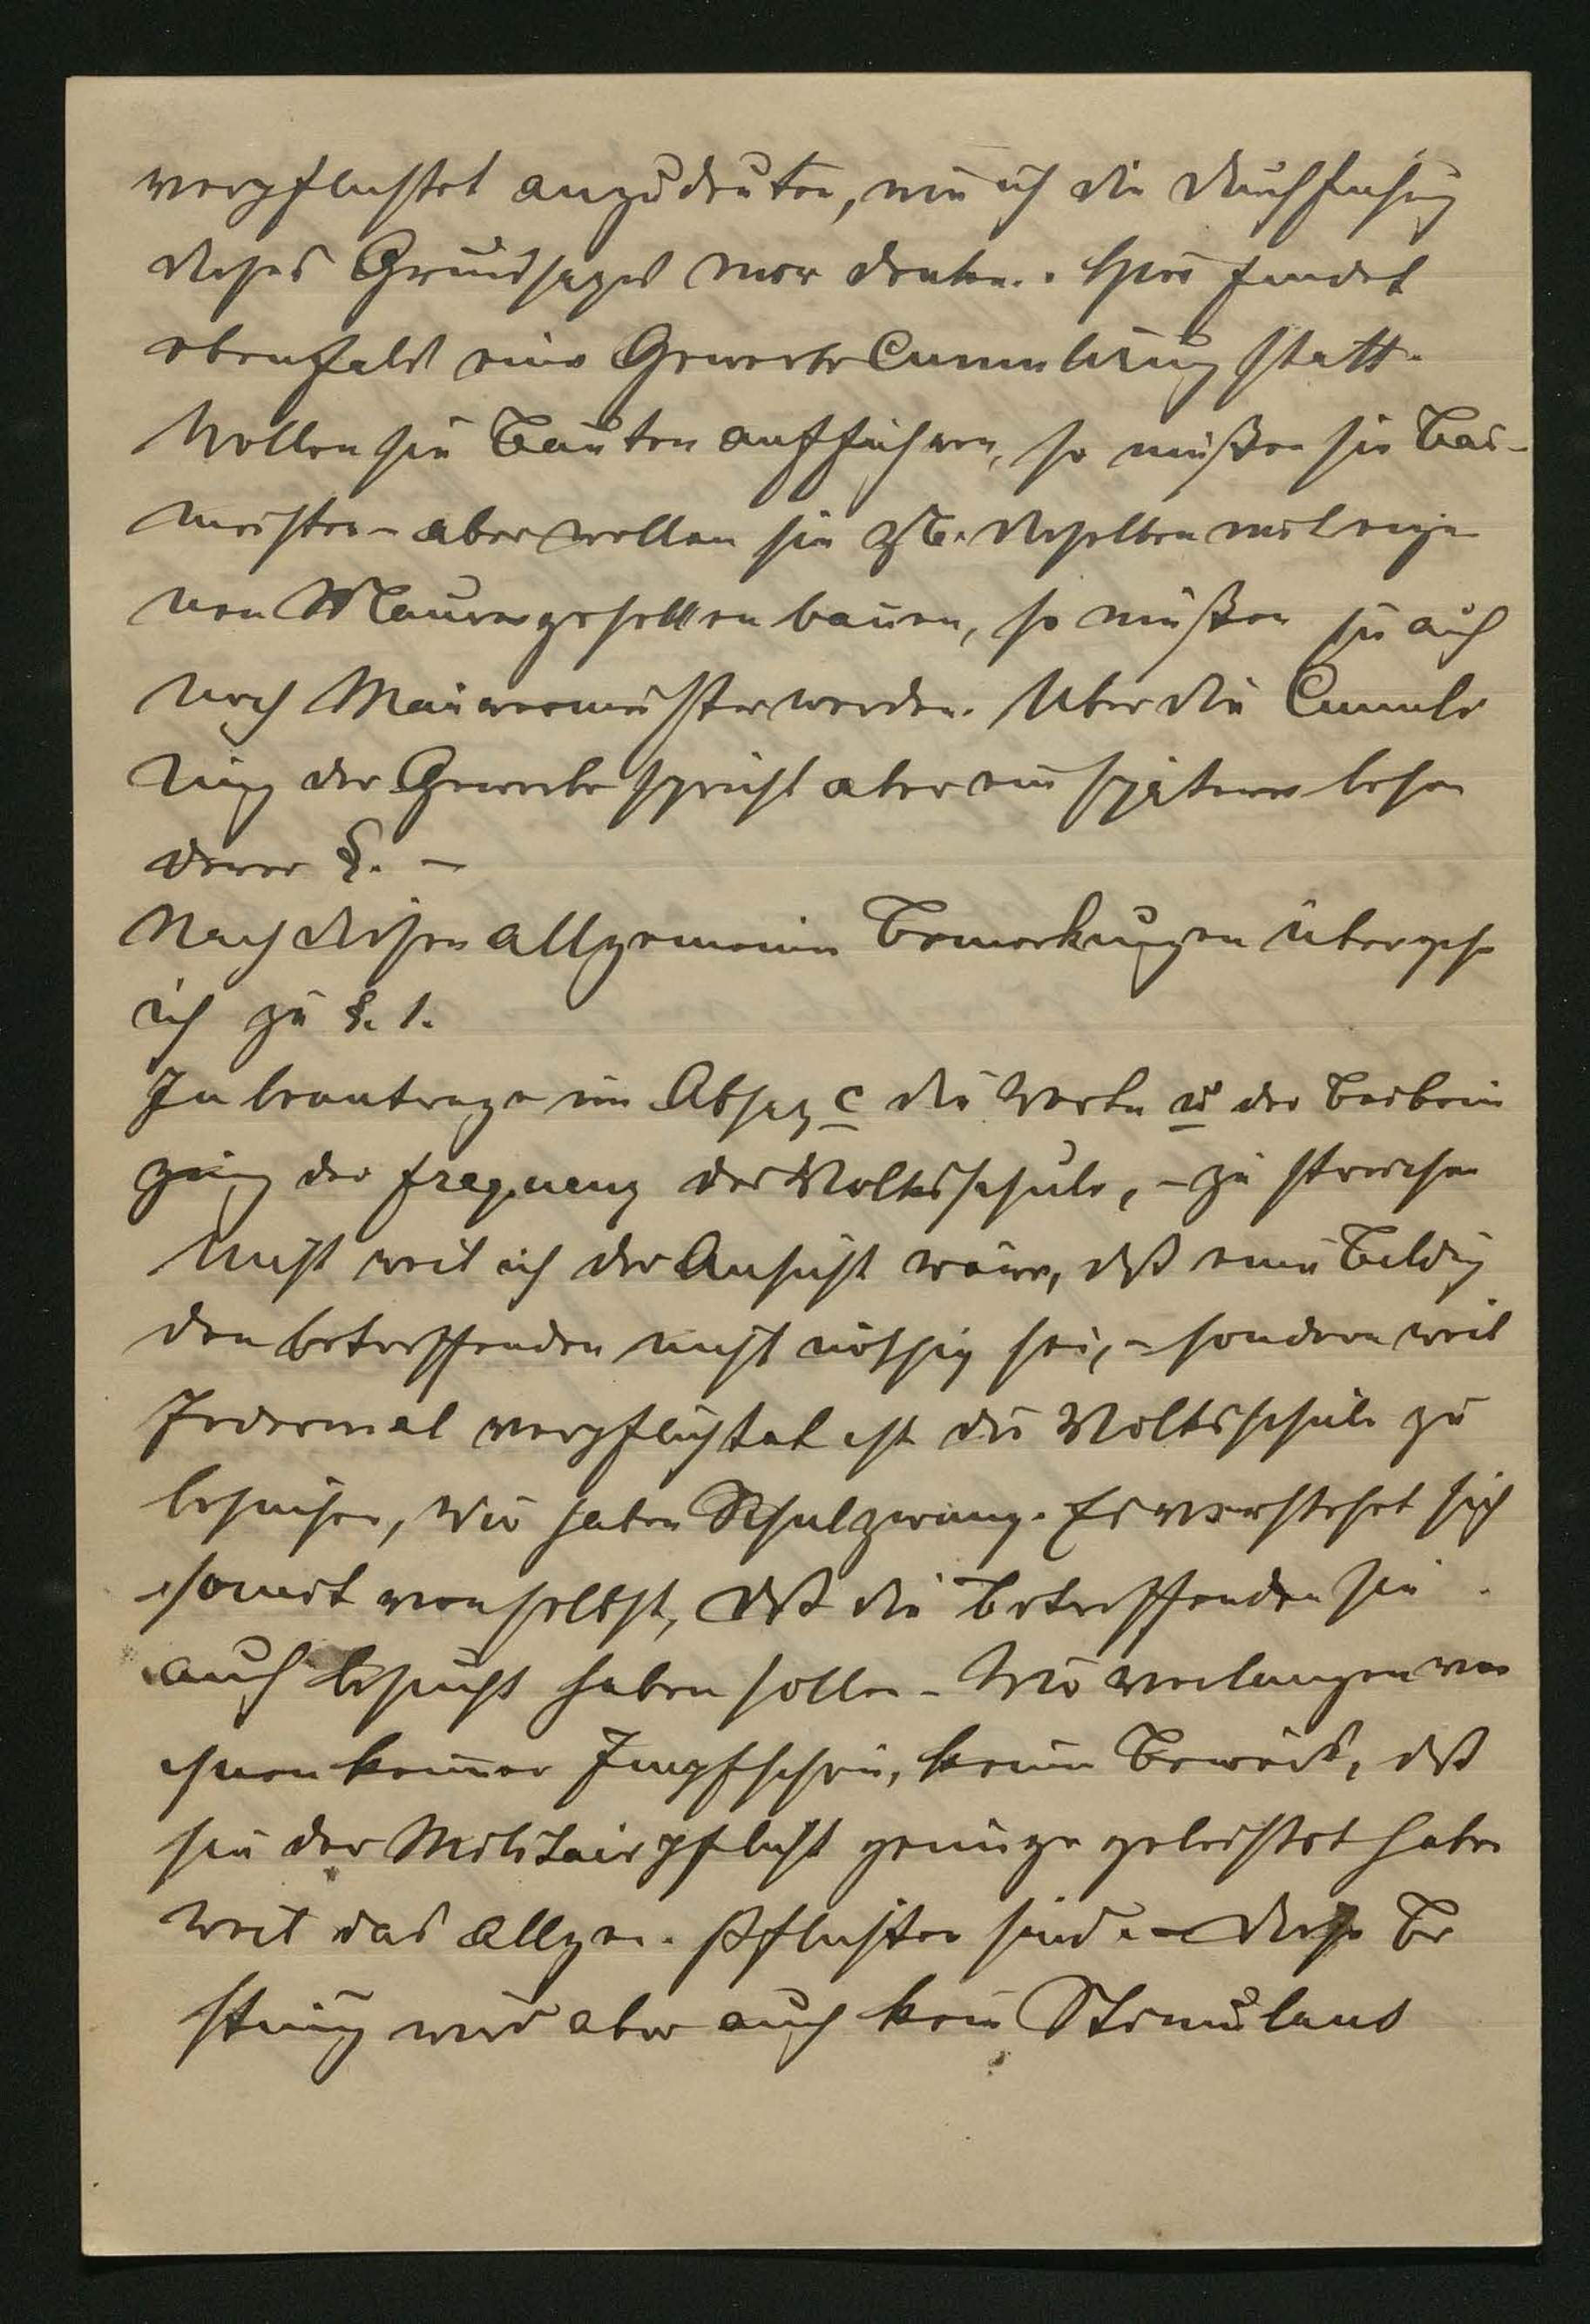 verpflichtet anzudeuten, wie ich die Durchführung
dieses Grundsatzes mir denke. Hier findet
ebenfalls eine Gewerbe Cumulirung statt.
Wollen sie Bauten aufführen, so müßen sie Bau-
meister – aber wollen sie z.B. dieselben mit eige
nen Maurergesellen bauen, so müßen sie auch
noch Maurermeister werden. Über die Cumuli
rung der Gewerbe spricht aber ein späterer beson
derer §. –
Nach diesen allgemeinen Bemerkungen übergehe
ich zu §. 1.
Ich beantrage im Absatz c die Worte u der Beibrin
gung der Frequenz der Volksschule, – zu streichen
Nicht weil ich der Ansicht wäre, daß eine Bildung
den betreffenden nicht nöthig sei, – sondern weil
Jedermal verpflichtet ist die Volksschule zu
besuchen, Wir haben Schulzwang. Es verstehet sich
somit von selbst, daß die Betreffenden sie
auch besucht haben sollen – Wir verlangen von
ihnen keinen Impfschein, keinen Beweis, daß
sie der Militairpflicht genüge geleistet haben
weil das allgem. Pflichten sind. – Diese Be
stimmung wird aber auch kein Stimulans